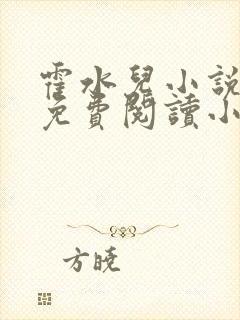 霍水兒小說
免費閱讀小
方曉